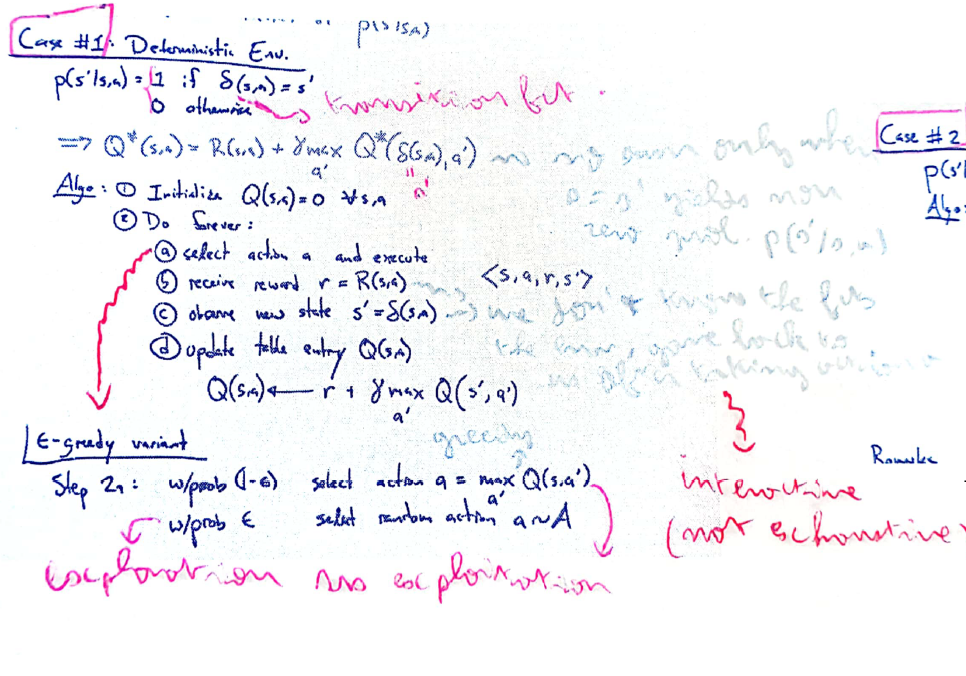 p(s'|s,a)
Case #1: Deterministic Env.
p(s'|s,a) = { 1 if δ(s,a) = s'
0 otherwise
→ transition fct.
=> Q*(s,a) = R(s,a) + γ max_a' Q*(δ(s,a), a')
s'
no sum only when
s = s' yields non
zero prob. p(s'/s,a)
Algo: ① Initialize Q(s,a)=0 ∀s,a
② Do forever:
ⓐ select action a and execute
ⓑ receive reward r = R(s,a) <s,a,r,s'>
ⓒ observe new state s' = δ(s,a) → we don't know the fcts
ⓓ update table entry Q(s,a)
Q(s,a) ← r + γ max_a' Q(s', a')
greedy
ε-greedy variant
Step 2a: w/prob (1-ε) select action a = max_a' Q(s,a')
w/prob ε select random action a ~ A
exploration vs exploitation
interactive
(not exhaustive
Case #2
p(s'|
Algo:
Remarks